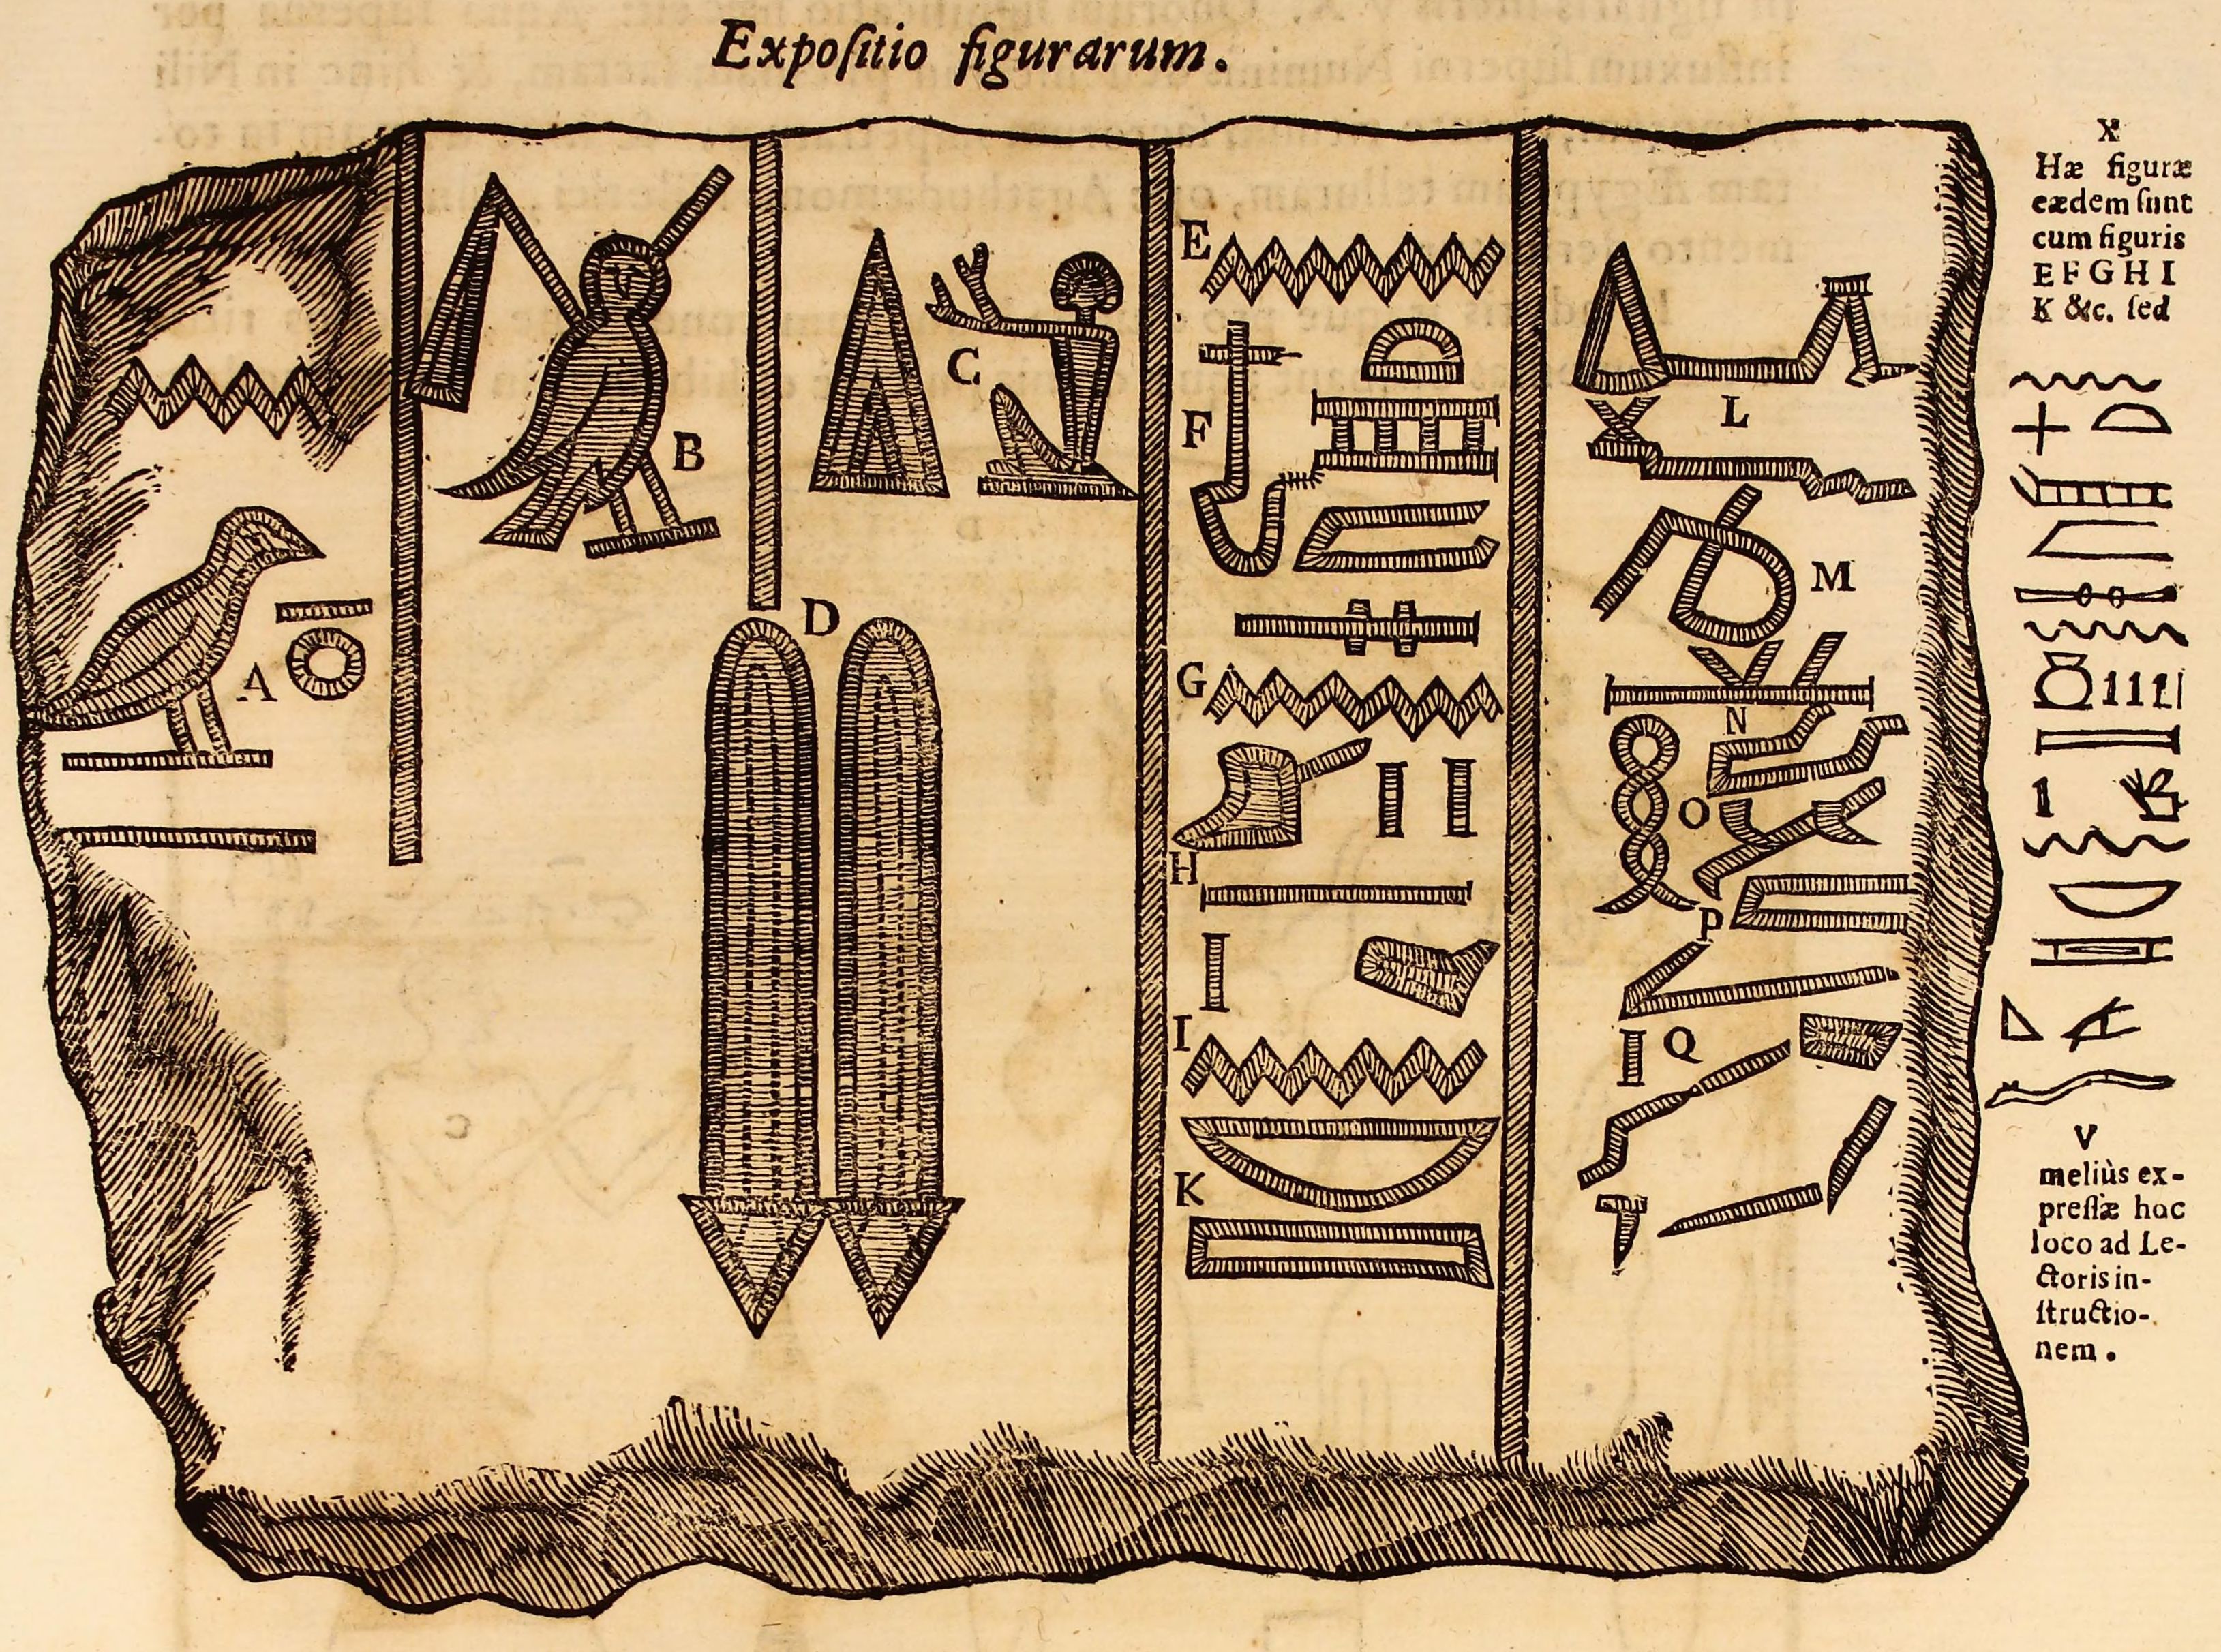 Expoſitio figurarum.
A
B
C
D
E
F
G
H
I
K
L
M
N
O
P
Q
X
Hæ figuræ
eædem ſunt
cum figuris
E F G H I
K &c. ſed
V
meliùs ex-
preſſæ hoc
loco ad Le-
ctoris in-
ſtructio-
nem.